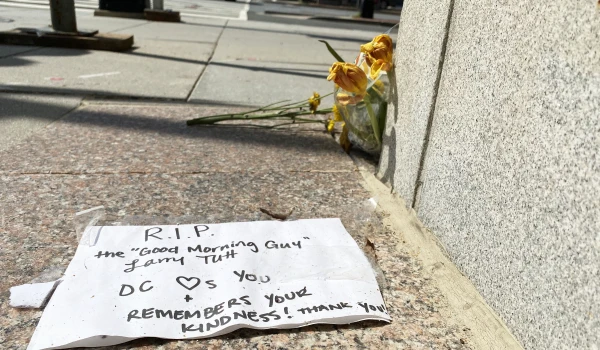 R.I.P.
the "Good Morning Guy"
Larry Tutt
DC ♡s You
+
REMEMBERS YOUR
KINDNESS! THANK YOU!